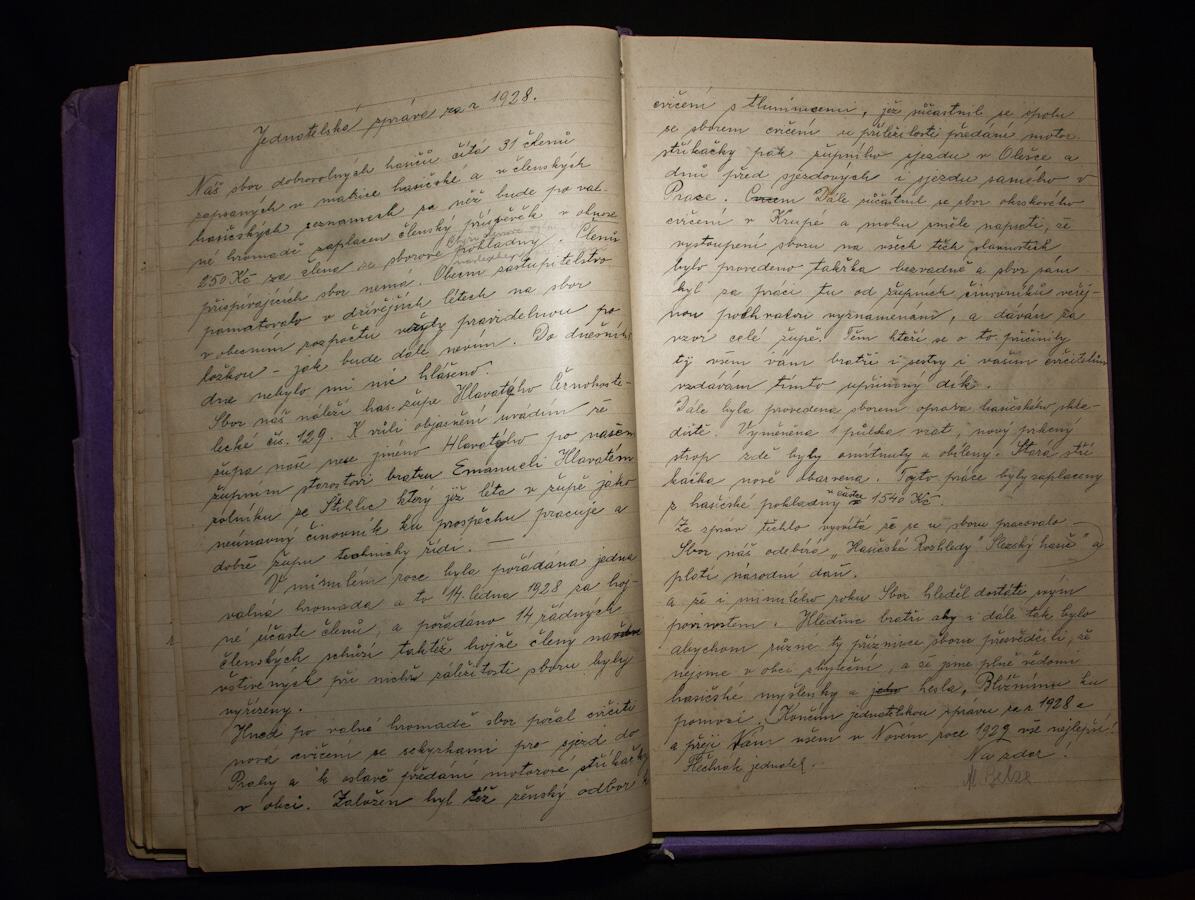 Jednatelská zpráva za r 1928.
Náš sbor dobrovolných hasičů čítá 31 členů
zapsaných v matrice hasičské a v členských
hasičských seznamech za něž bude po val-
né hromadě zaplacen členský příspěvěk v obnose
250 Kč za člena ze sborové pokladny. Členů
přispívajících sbor nemá. Obecní zastupitelstvo
pamatovalo v dřívějších létech na sbor
v obecním rozpočtu vždy pravidelnou po
ložkou – jak bude dále nevím. Do dnešního
dne nebylo mi nic hlášeno.
Sbor náš náleží has. župě Hlavatého Černokoste-
lecké čís. 129. K vůli objasnění uvádím že
župa naše nese jméno Hlavatého po našem
župním starostovi bratru Emanueli Hlavatém
rolníku ze Štíhlic který již léta v župě jako
neúnavný činovník ku prospěchu pracuje a
dobře župu technicky řídí. —
V minulém roce byla pořádána jedna
valná hromada a to 14. ledna 1928 za hoj-
né účasti členů, a pořádáno 14 řádných
členských schůzí taktéž hojně členy
vštívených při nichž záležitosti sboru byly
vyřízeny.
Hned po valné hromadě sbor počal cvičiti
nová cvičení se sekyrkami pro sjezd do
Prahy a k oslavě předání motorové stříkačky
v obci. Založen byl též ženský odbor
cvičení s tlumicemi, jež súčastnil se spolu
se sborem cvičení u příležitosti předání motor.
stříkačky pak župního sjezdu v Olešce a
dnů před sjezdových i sjezdu samého v
Praze. Dále súčastnil se sbor okrskového
cvičení v Krupé a mohu směle napsati, že
vystoupení sboru na všech těch slavnostech
bylo provedeno takřka bezvadně a sbor sám
byl za práci tu od župních činovníků veřej-
nou pochvalou vyznamenaní, a dáván za
vzor celé župě. Těm kteří se o to přičinily
tý všem vám bratři i sestry i vaším cvičitelům
vzdávám tímto upřimný dík.
Dále byla provedena sborem oprava hasičského skla-
diště. Vyměněna 1 půlka vrat, nový prkený
strop zdě byly omítnuty a obíleny. Stará stří
kačka nově obarvena. Tyto práce byly zaplaceny
z hasičské pokladny v částce 1540 Kč.
Ze zpráv těchto vysvítá že se u sboru pracovalo –
Sbor náš odebírá „Hasičské Rozhledy" Slezský hasič" a
platí národní daň.
a že i minulého roku Sbor hleděl dostáti svým
povinostem. Hleďme bratři aby i dále tak bylo
abychom různé ty příznivce sboru přesvědčili, že
nejsme v obci zbyteční, a že jsme plně vědomi
hasičské myšlenky a jeho hesla, Bližnímu ku
pomoci. Končím jednatelskou zpravu za r 1928 a
a přeji Vám všem v Novém roce 1929 vše nejlepší!
Na zdar!
jednatel.